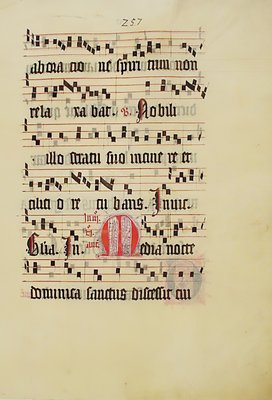 257
ab oratio ne spiri tum non
rela xa bat. V. Nobili
illo stratu suo in cine re et
cilici o re cu bans. Invic.
Glia. In. Media nocte
dominica sanctus discessit cui